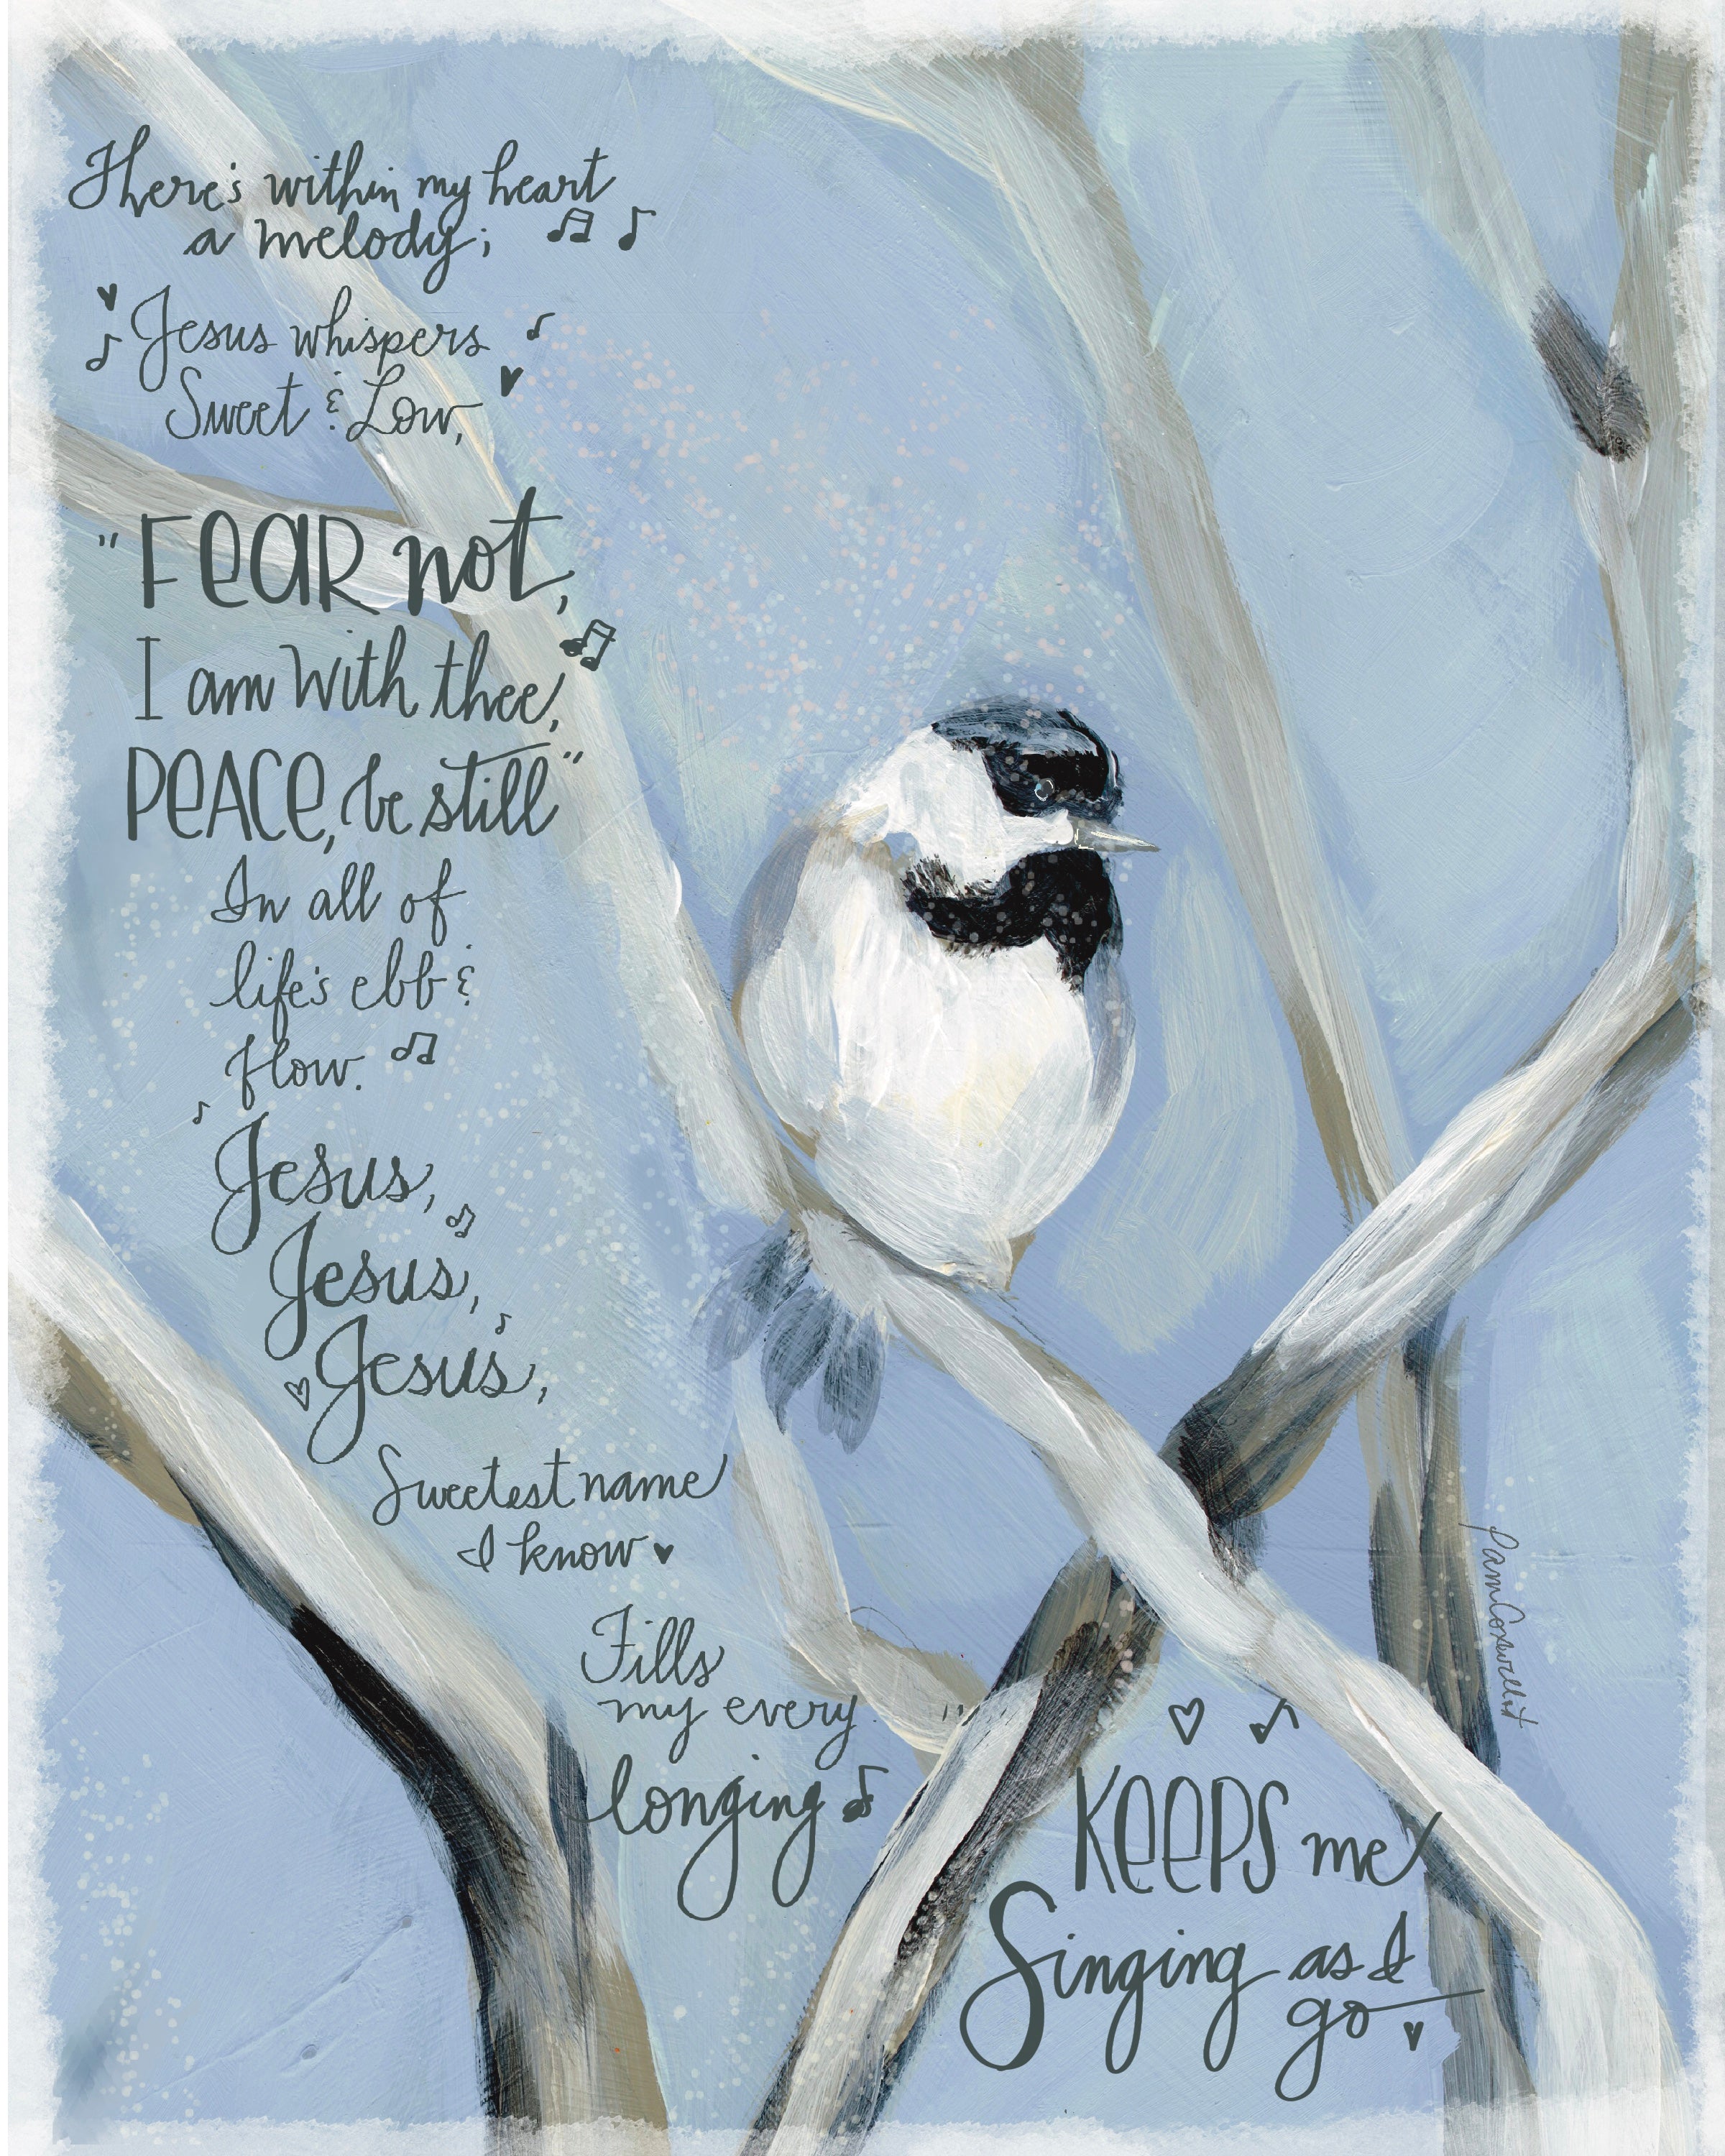 There's within my heart
a melody;
Jesus whispers
Sweet & Low,
"Fear not,
I am with thee,
Peace, be still"
In all of
life's ebb &
flow.
Jesus,
Jesus,
Jesus,
Sweetest name
I know
Fills
my every
longing
Keeps me
Singing as I
go